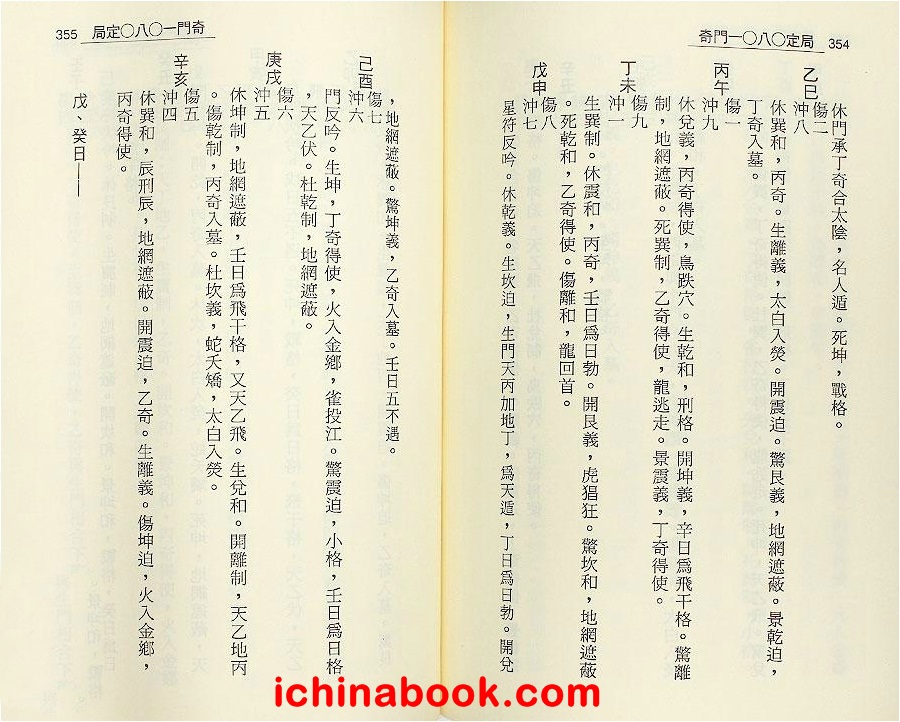 奇門一〇八〇定局 354
休門承丁奇合太陰，名人遁。死坤，戰格。
乙巳 傷二 沖八
休巽和，丙奇。生離義，太白入熒。開震迫。驚艮義，地網遮蔽。景乾迫，
丁奇入墓。
丙午 傷一 沖九
休兌義，丙奇得使，鳥跌穴。生乾和，刑格。開坤義，辛日為飛干格。驚離
制，地網遮蔽。死巽制，乙奇得使，龍逃走。景震義，丁奇得使。
丁未 傷九 沖一
生巽制。休震和，丙奇，壬日為日勃。開艮義，虎猖狂。驚坎和，地網遮蔽
。死乾和，乙奇得使。傷離和，龍回首。
戊申 傷八 沖七
星符反吟。休乾義。生坎迫，生門天丙加地丁，為天遁，丁日為勃。開兌
355 奇門一〇八〇定局
，地網遮蔽。驚坤義，乙奇入墓。壬日五不遇。
己酉 傷七 沖六
門反吟。生坤，丁奇得使，火入金鄉，雀投江。驚震迫，小格，壬日為日格
，天乙伏。杜乾制，地網遮蔽。
庚戌 傷六 沖五
休坤制，地網遮蔽，壬日為飛干格，又天乙飛。生兌和。開離制，天乙地丙
。傷乾制，丙奇入墓。杜坎義，蛇夭矯，太白入熒。
辛亥 傷五 沖四
休巽和，辰刑辰，地網遮蔽。開震迫，乙奇。生離義。傷坤迫，火入金鄉，
丙奇得使。
戊、癸日——
ichinabook.com